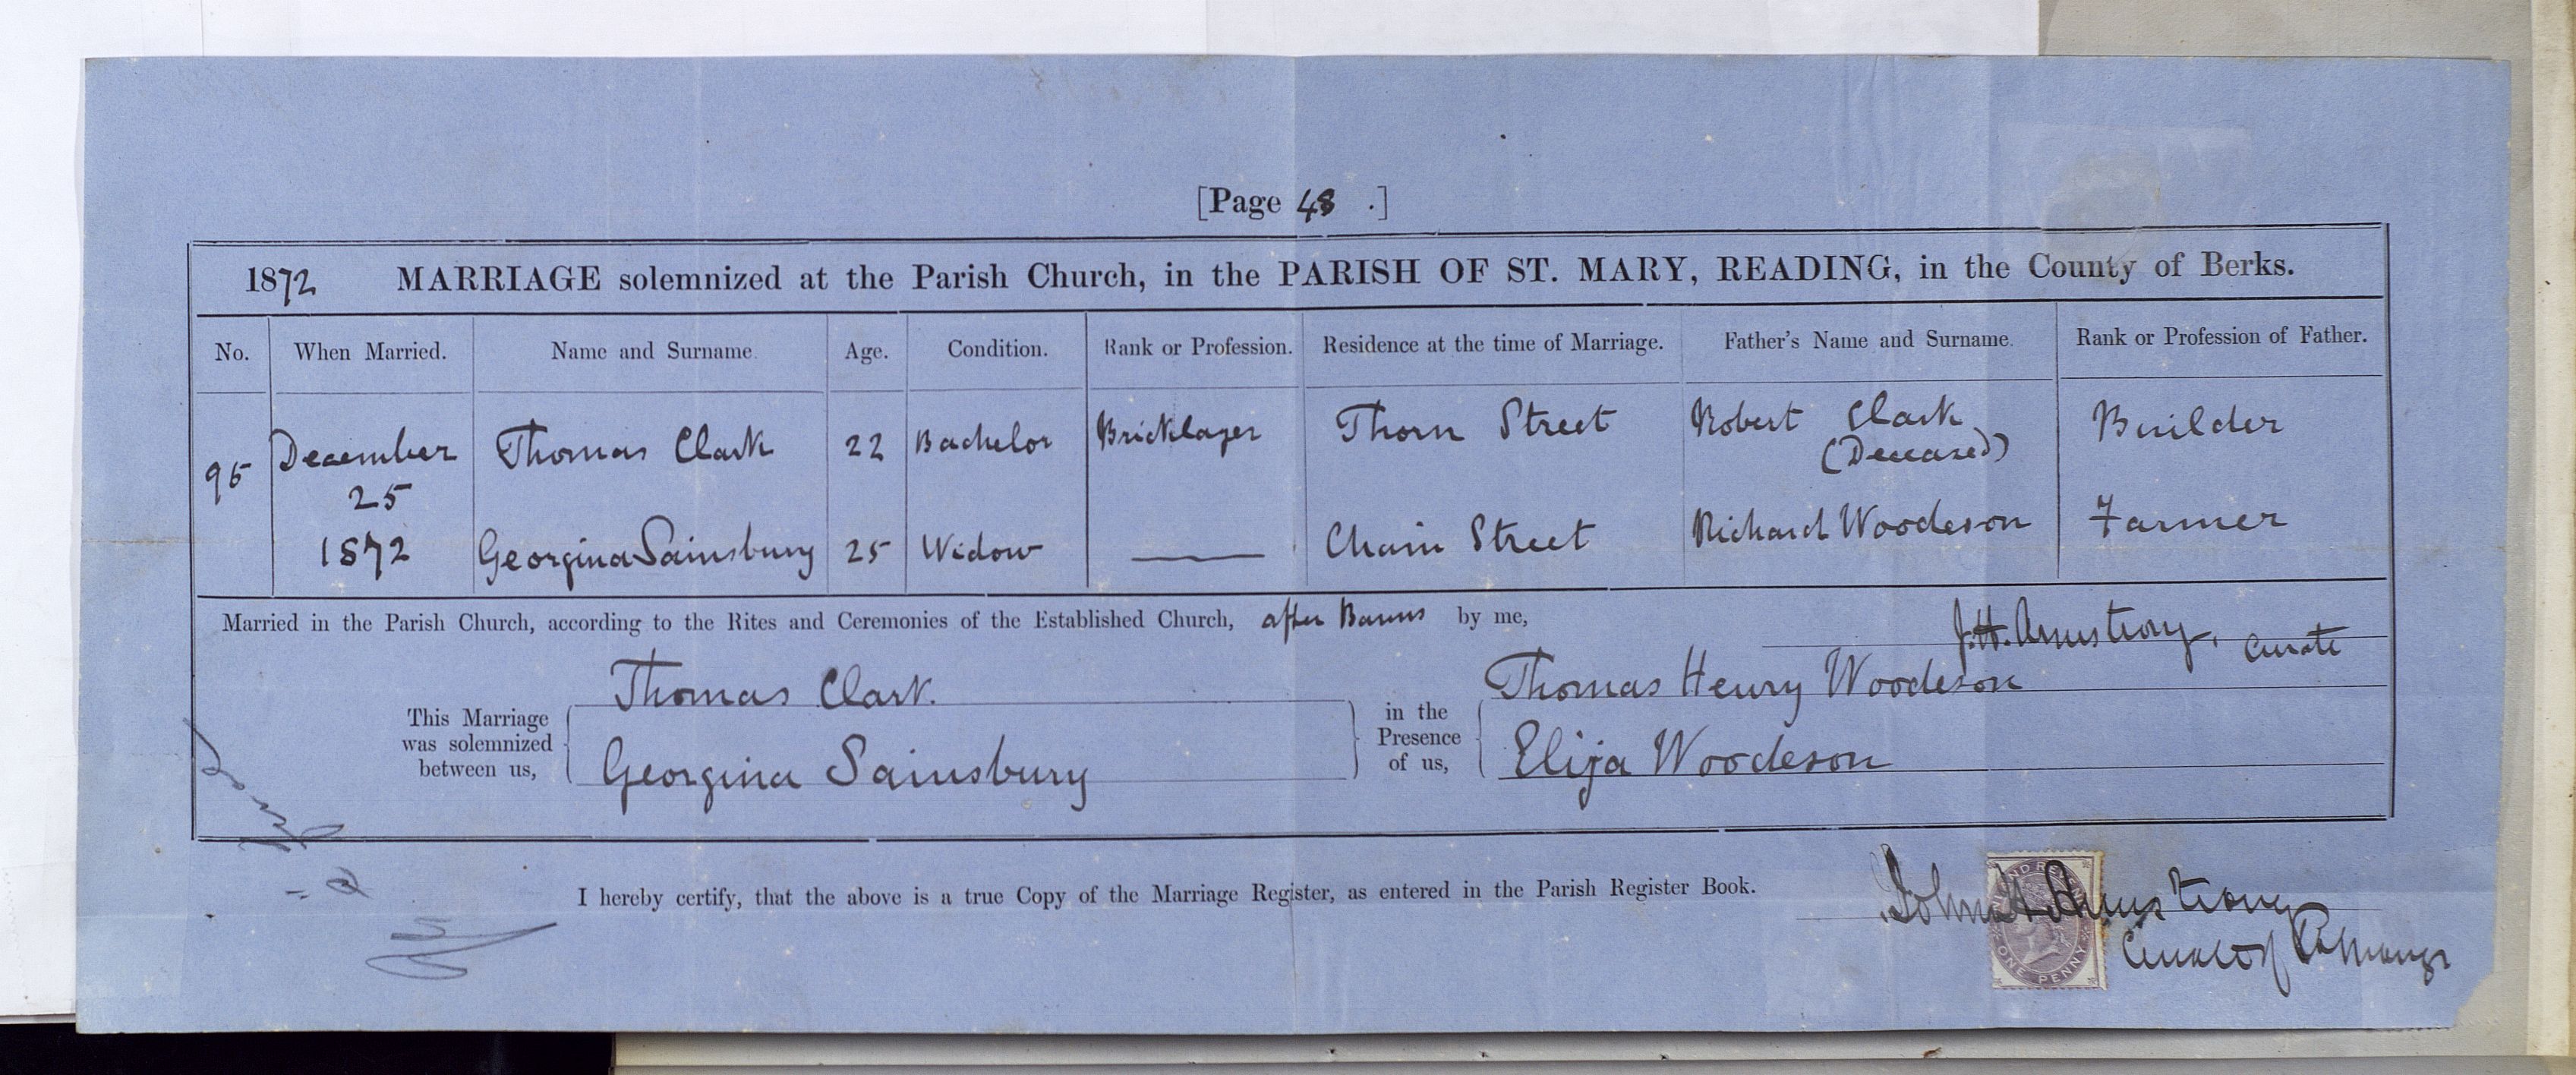 [Page 48 .]
1872 MARRIAGE solemnized at the Parish Church, in the PARISH OF ST. MARY, READING, in the County of Berks.
No. When Married. Name and Surname. Age. Condition. Rank or Profession. Residence at the time of Marriage. Father's Name and Surname. Rank or Profession of Father.
95 December 25 1872 Thomas Clark 22 Bachelor Bricklayer Thorn Street Robert Clark (Deceased) Builder
Georgina Sainsbury 25 Widow —— Chain Street Richard Woodeson Farmer
Married in the Parish Church, according to the Rites and Ceremonies of the Established Church, after Banns by me,
J.H. Armstrong, Curate
This Marriage was solemnized between us,
Thomas Clark.
Georgina Sainsbury
in the Presence of us,
Thomas Henry Woodeson
Eliza Woodeson
I hereby certify, that the above is a true Copy of the Marriage Register, as entered in the Parish Register Book.
John H Armstrong
Curate of St Mary's
INLAND REVENUE
ONE PENNY